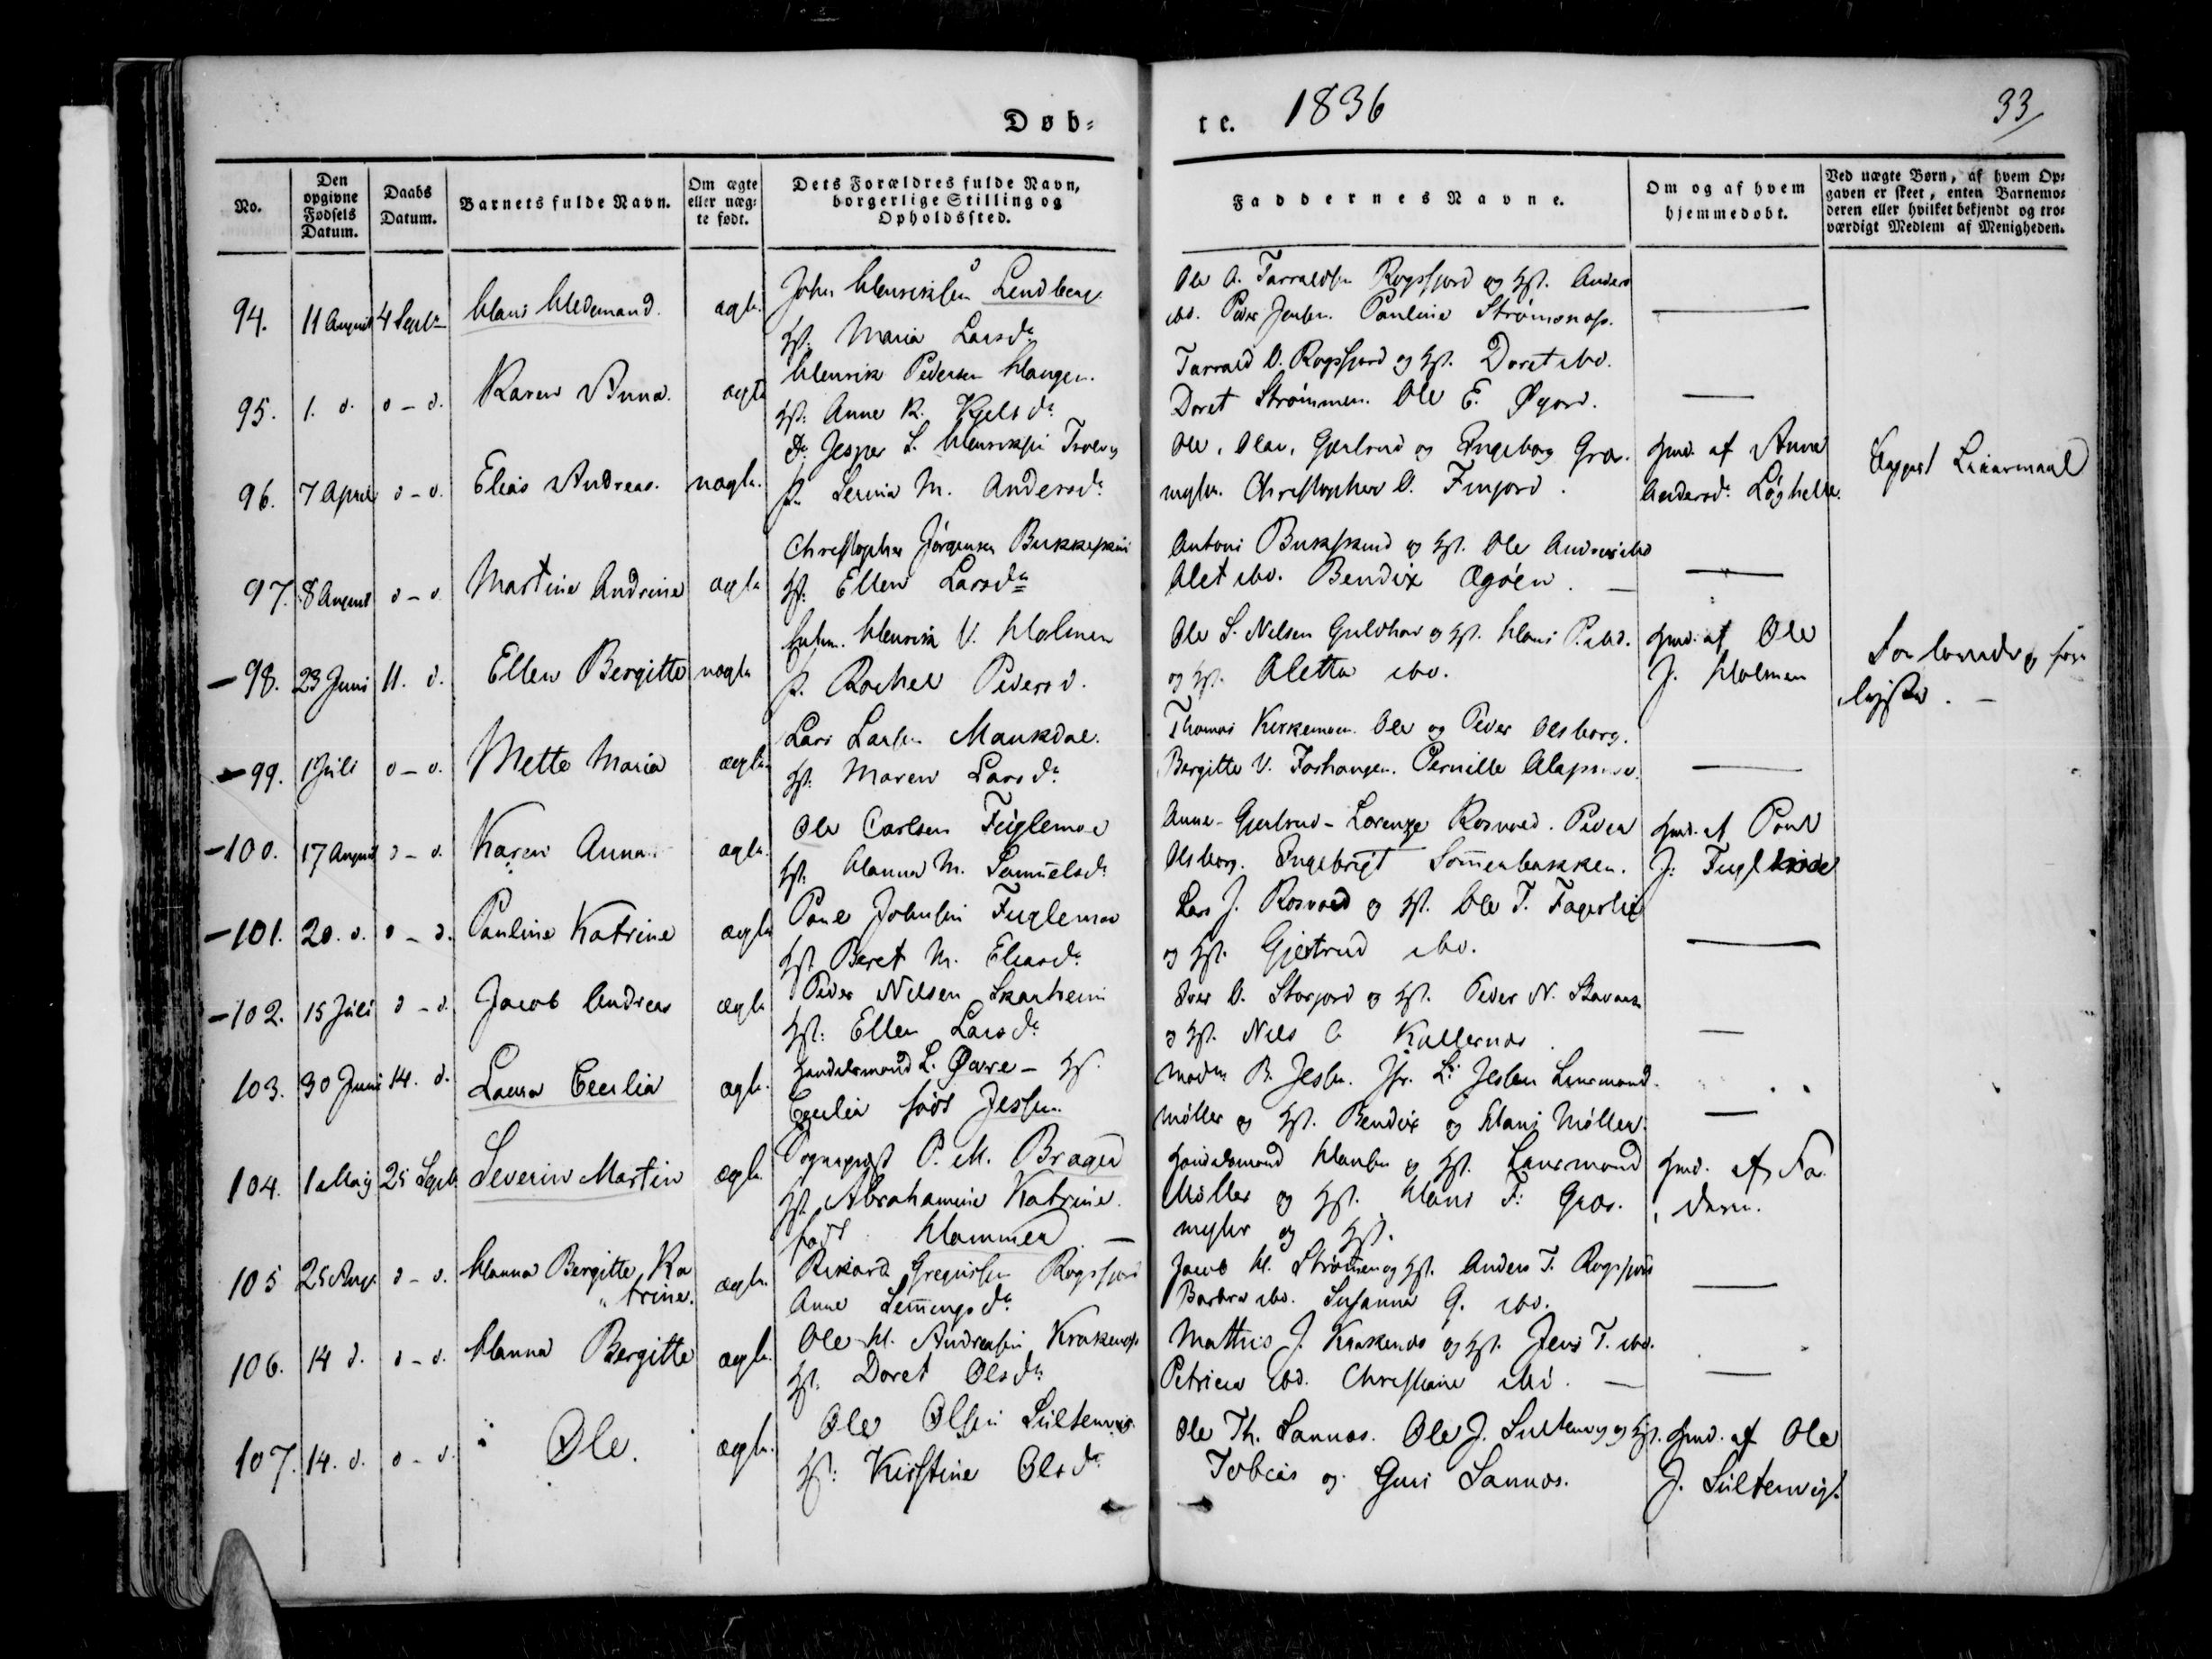 Døb=
te. 1836
33/
No.
Den opgivne Fødsels Datum.
Daabs Datum.
Barnets fulde Navn.
Om ægte eller uæg= te født.
Dets Forældres fulde Navn, borgerlige Stilling og Opholdssted.
Faddernes Navne.
Om og af hvem hjemmedøbt.
Ved uægte Børn, af hvem Op= gaven er skeet, enten Barnemo= deren eller hvilket bekjendt og tro= værdigt Medlem af Menigheden.
94. 11 August 4 Septr Hans Hildemand. ægte.
John Henriksen Lindberg
Hst. Maria Larsdr
Ole A. Tarraldsen Rogsfjord og Hst. Anders
ibd. Peder Jensen. Pauline Strømsnæs.
95. 1. d. d - d. Karen Anna. ægte
Henrik Pedersen Hangen.
Hst. Anne K. Kjelsdr
Tarrald O. Rogsfjord og Hst. Doret ibd.
Doret Strømmen. Ole E. Øyord.
96. 7 April d - d. Elias Andreas. uægte.
Jesper S. Henriksen
P. M. Andersdr
Ole, Olav, Gjertrud og Ingeborg Gra-
Christopher O. Finjord.
Hmd. af Anna
Andersdr Løghelle.
97. 8 August d - d. Martine Andrine ægte
Christopher Jørgensen Bukkeskin
Hst. Ellen Larsdr
Antoni Bukskind og Hst. Ole Andreas ibd
Alet ibd. Bendix Ægøen.
-98. 23 Juni 11. d. Ellen Bergitte uægte
Henrik V. Holmen
P. Rachel Pedersd.
Ole S. Nilsen Guldhav og Hst. Hans P. ibd.
og Hst. Aletta ibd.
Hmd. af Ole
J. Holmen
-99. 1 Juli d - d. Mette Maria ægte
Lars Larsen Maukdal.
Hst. Maren Larsdr
Thomas Kirkemoen. Ole og Peder Olsborg.
Bergitte V. Forhangen. Pernille
-100. 17 August d - d. Karen Anna. ægte.
Ole Carlsen Fuglemoe
Hst. Hanna M. Samuelsdr
Anne - Gjertrud - Lorenze Rosvold. Peder
Olsborg. Ingebrigt Sommerbakken.
Hmd. af Paul
J. Fugl
-101. 20. d. d - d. Pauline Katrine ægte
Paul Johnsen Fuglemoe
Hst. Beret M. Eliasdr
Lars J. Rosvold og Hst. Ole T. Fagerlie
og Hst. Gjertrud ibd.
-102. 15 Juli d - d. Jacob Andreas ægte
Peder Nilsen
Hst. Ellen Larsdr
Iver O. Storjord og Hst. Peder N.
og Hst. Nils O Kallernæs
103. 30 Juni 14. d. Laura Cecilia ægte.
Handelsmand L. Øwre - Hst.
Cecilia født Jessen.
Madm B. Jessen. Jfr. L. Jessen Lensmand
Møller og Hst. Bendix og Hans Møller.
104. 1 Maij 25 Septb Severin Martin ægte.
Sognepræst P. M. Brager
Hst. Abrahamine Katrine.
født Hammer. -
Handelsmand Hansen og Hst. Lensmand
Møller og Hst. Hans F. Græs-
og Hst.
Hmd. af Fa-
deren.
105 25 Aug. d - d. Hanna Bergitte Ka
trine. ægte.
Rikard Gregusen Rogsfjord
Anne Lemmingsdr
Jacob H. Strømmen og Hst. Anders T. Rogsfjord
Barbra ibd. Susanna G. ibd.
106. 14 d. d - d. Hanna Bergitte ægte.
Ole H. Andreasen Krakenæs
Hst. Doret Olsdr
Mathis J. Krakenæs og Hst. Jens T. ibd.
Petrica ibd. Christiane ibd. -
107. 14. d. d - d. Ole. ægte.
Ole Olsen Sultenvig.
Hst. Kirstine Olsdr
Ole Th. Sannæs. Ole J. Sultenvig og Hst.
Tobias og Guri Sannæs.
Hmd. af Ole
J. Sultenvig.